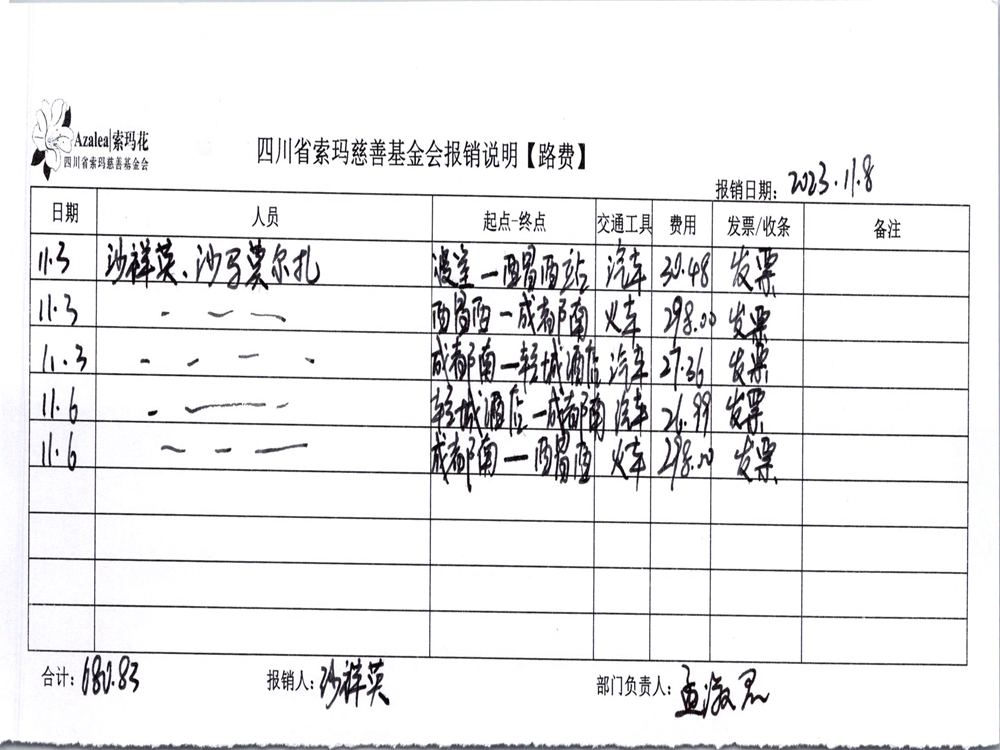 Azalea|索玛花
四川省索玛慈善基金会
四川省索玛慈善基金会报销说明【路费】
报销日期: 2023.11.8
日期 人员 起点-终点 交通工具 费用 发票/收条 备注
11.3 沙祥英、沙马莫尔扎 —西昌西站 汽车 30.48 发票
11.3 西昌西—成都南 火车 298.00 发票
11.3 成都南—轻城酒店 汽车 27.36 发票
11.6 轻城酒店—成都南 汽车 26.99 发票
11.6 成都南—西昌西 火车 298.00 发票
合计: 680.83 报销人: 沙祥英 部门负责人: 孟